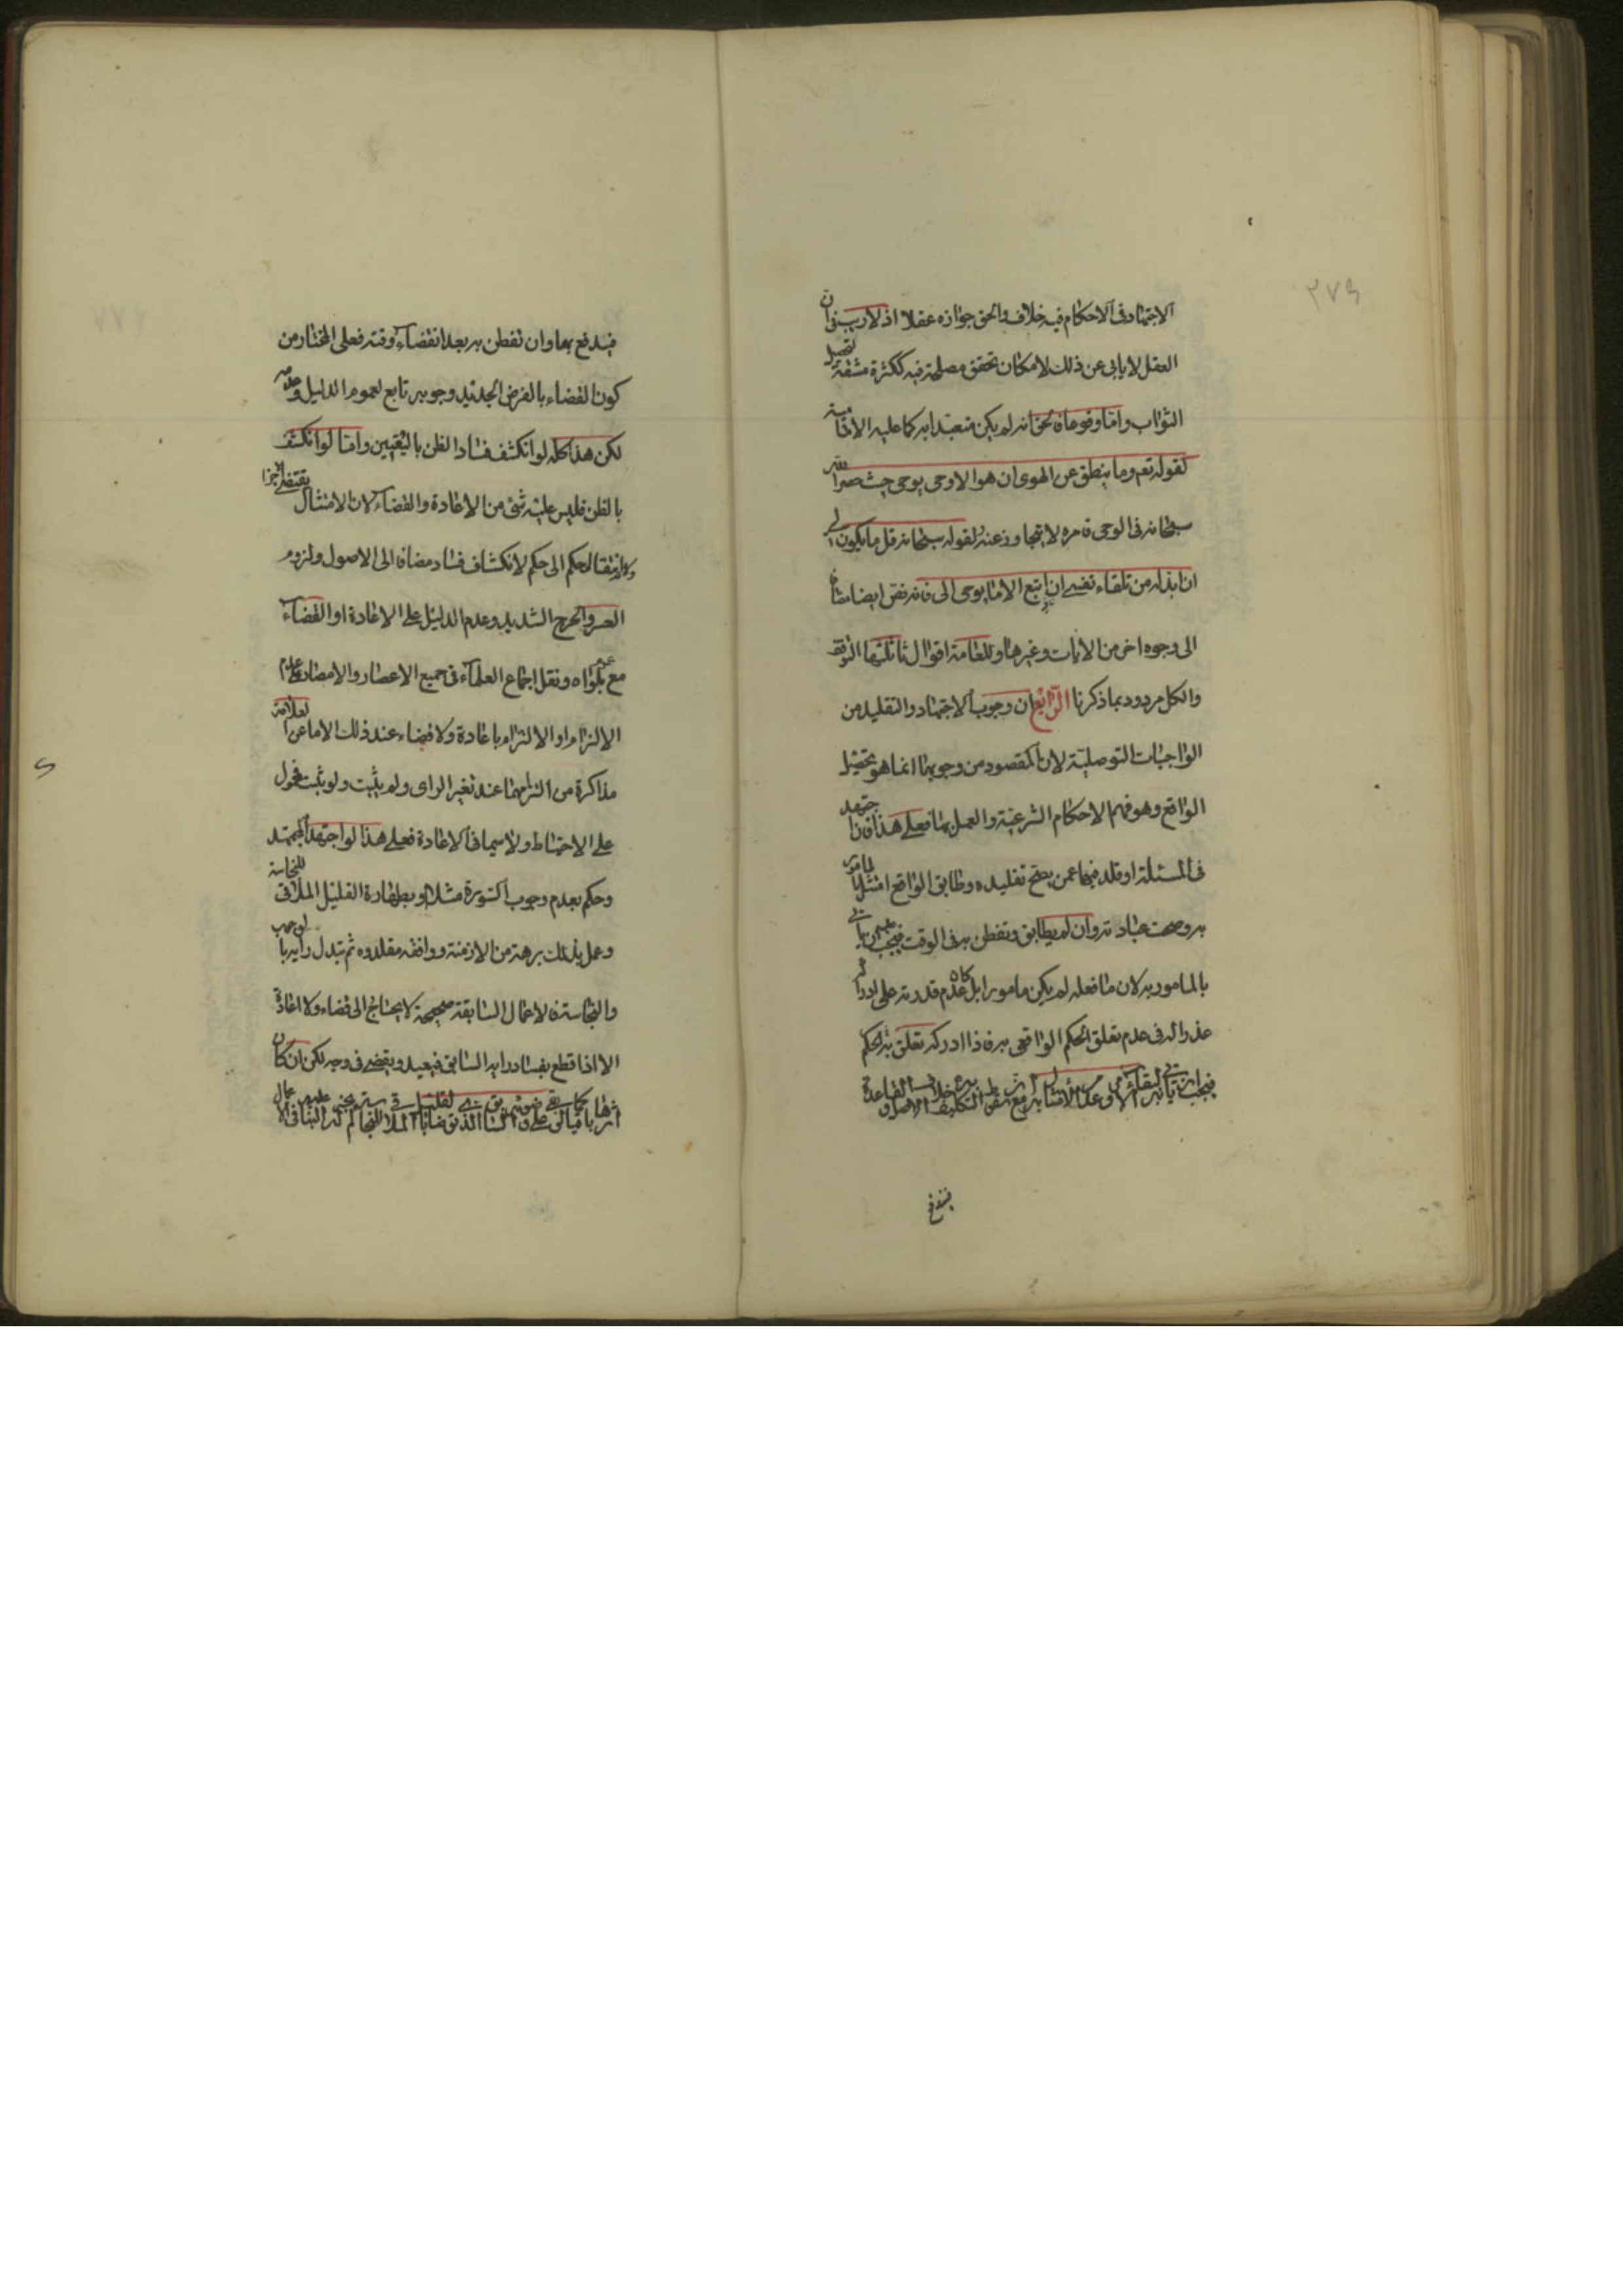 ۲۷۶
الاجتهاد فی الاحکام فیه خلاف والحق جوازه عقلا اذ لاریب فی ان
العقل لا یابی عن ذلک لامکان تحقق مصلحة فیه ککثرة مشقة لتحصیل
الثواب واما وقوعا فالحق انه لم یکن متعبدا به کما علیه الامامیة
لقوله تعم وما ینطق عن الهوی ان هو الا وحی یوحی حیث حصر الله
سبحانه فی الوحی فامره لا یتجاوز عنه ولقوله سبحانه قل ما یکون لی
ان ابدله من تلقاء نفسی ان اتبع الا ما یوحی الی فانه نص ایضا مضافا
الی وجوه اخر من الایات وغیرها وللعامة اقوال ثالثها التوقف
والکل مردود بما ذکرنا الرابع ان وجوب الاجتهاد والتقلید من
الواجبات التوصلیة لان المقصود من وجوبهما انما هو تحصیل
الواقع وهو فهم الاحکام الشرعیة والعمل بها فعلی هذا فاذا اجتهد
فی المسئلة او قلد فیها عمن یصح تقلیده وطابق الواقع امتثل بما امر
به وصحت عبادته وان لم یطابق وتفطن به فی الوقت فیجب علیه ان یاتی
بالمامور به لان ما فعله لم یکن مامورا به بل کان عدم قدرته علی ادراکه
عذرا له فی عدم تعلق الحکم الواقعی به فاذا ادرکه تعلق به الحکم
فیجب ان یاتی به لبقاء الامر وعدم الامتثال به مع ان سقوط التکلیف به خلاف الاصل والقاعدة
فیندفع
فیندفع بها وان تفطن به بعد انقضاء وقته فعلی المختار من
کون القضاء بالفرض الجدید وجوبه تابع لعموم الدلیل وعدمه
لکن هذا کله لو انکشف فساد الظن بالیقین واما لو انکشف
بالظن فلیس علیه شئ من الاعادة والقضاء لان الامتثال یقتضی الاجزا
والانتقال حکم الی حکم لانکشاف فساد مضافا الی الاصول ولزوم
العسر والحرج الشدید وعدم الدلیل علی الاعادة او القضاء
مع عموم بلواه ونقل اجماع العلماء فی جمیع الاعصار والامصار علی عدم
الالزام او الالتزام باعادة ولا قضاء عند ذلک الا ما عن العلامة
مذاکرة من التزامهما عند تغیر الرای ولم یثبت ولو ثبت فمحول
علی الاحتیاط ولاسیما فی الاعادة فعلی هذا لو اجتهد المجتهد
وحکم بعدم وجوب السورة مثلا او بطهارة القلیل الملاقی للنجاسة
وعمل بذلک برهة من الازمنة ووافقه مقلدوه ثم تبدل رایه بالوجوب
والنجاسة فالاعمال السابقة صحیحة لا یحتاج الی قضاء ولا اعادة
الا اذا قطع بفساد رایه السابق فیعید ویقضی فی وجه لکن ان کان